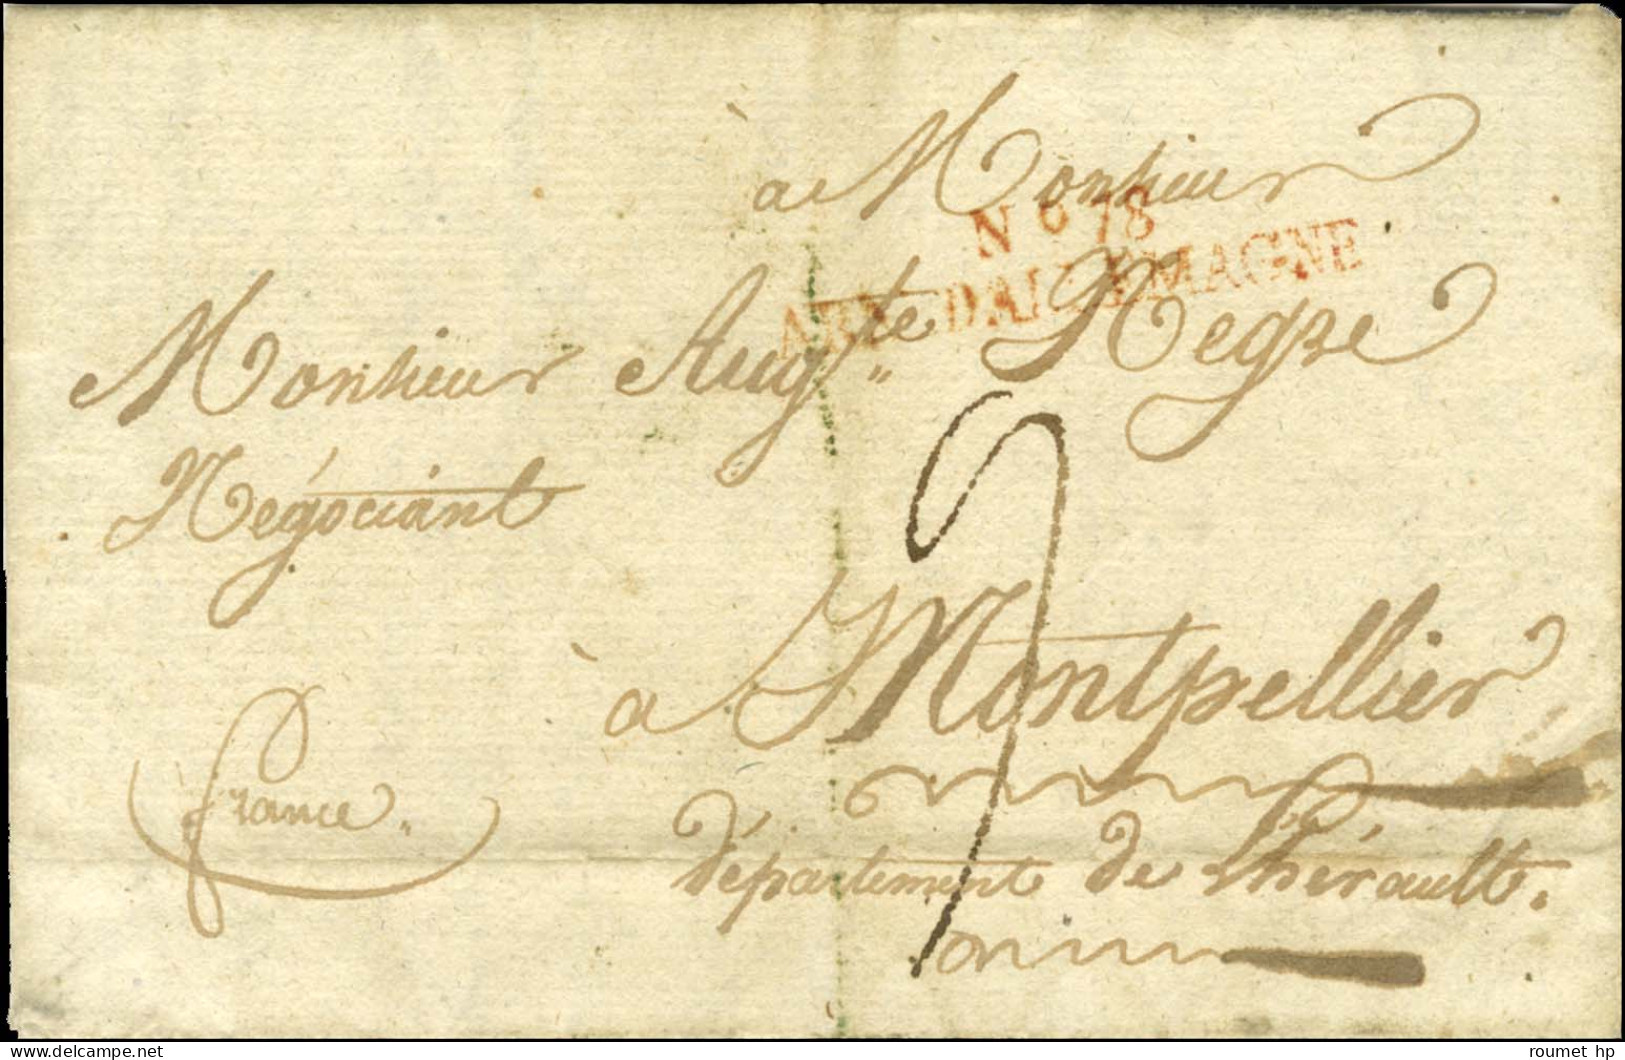 à Monsieur
N° 78
ARM. D'ALLEMAGNE
Monsieur Aug.te Negre
Négociant
à Montpellier
france.
département de Lhérault.
roumet hp